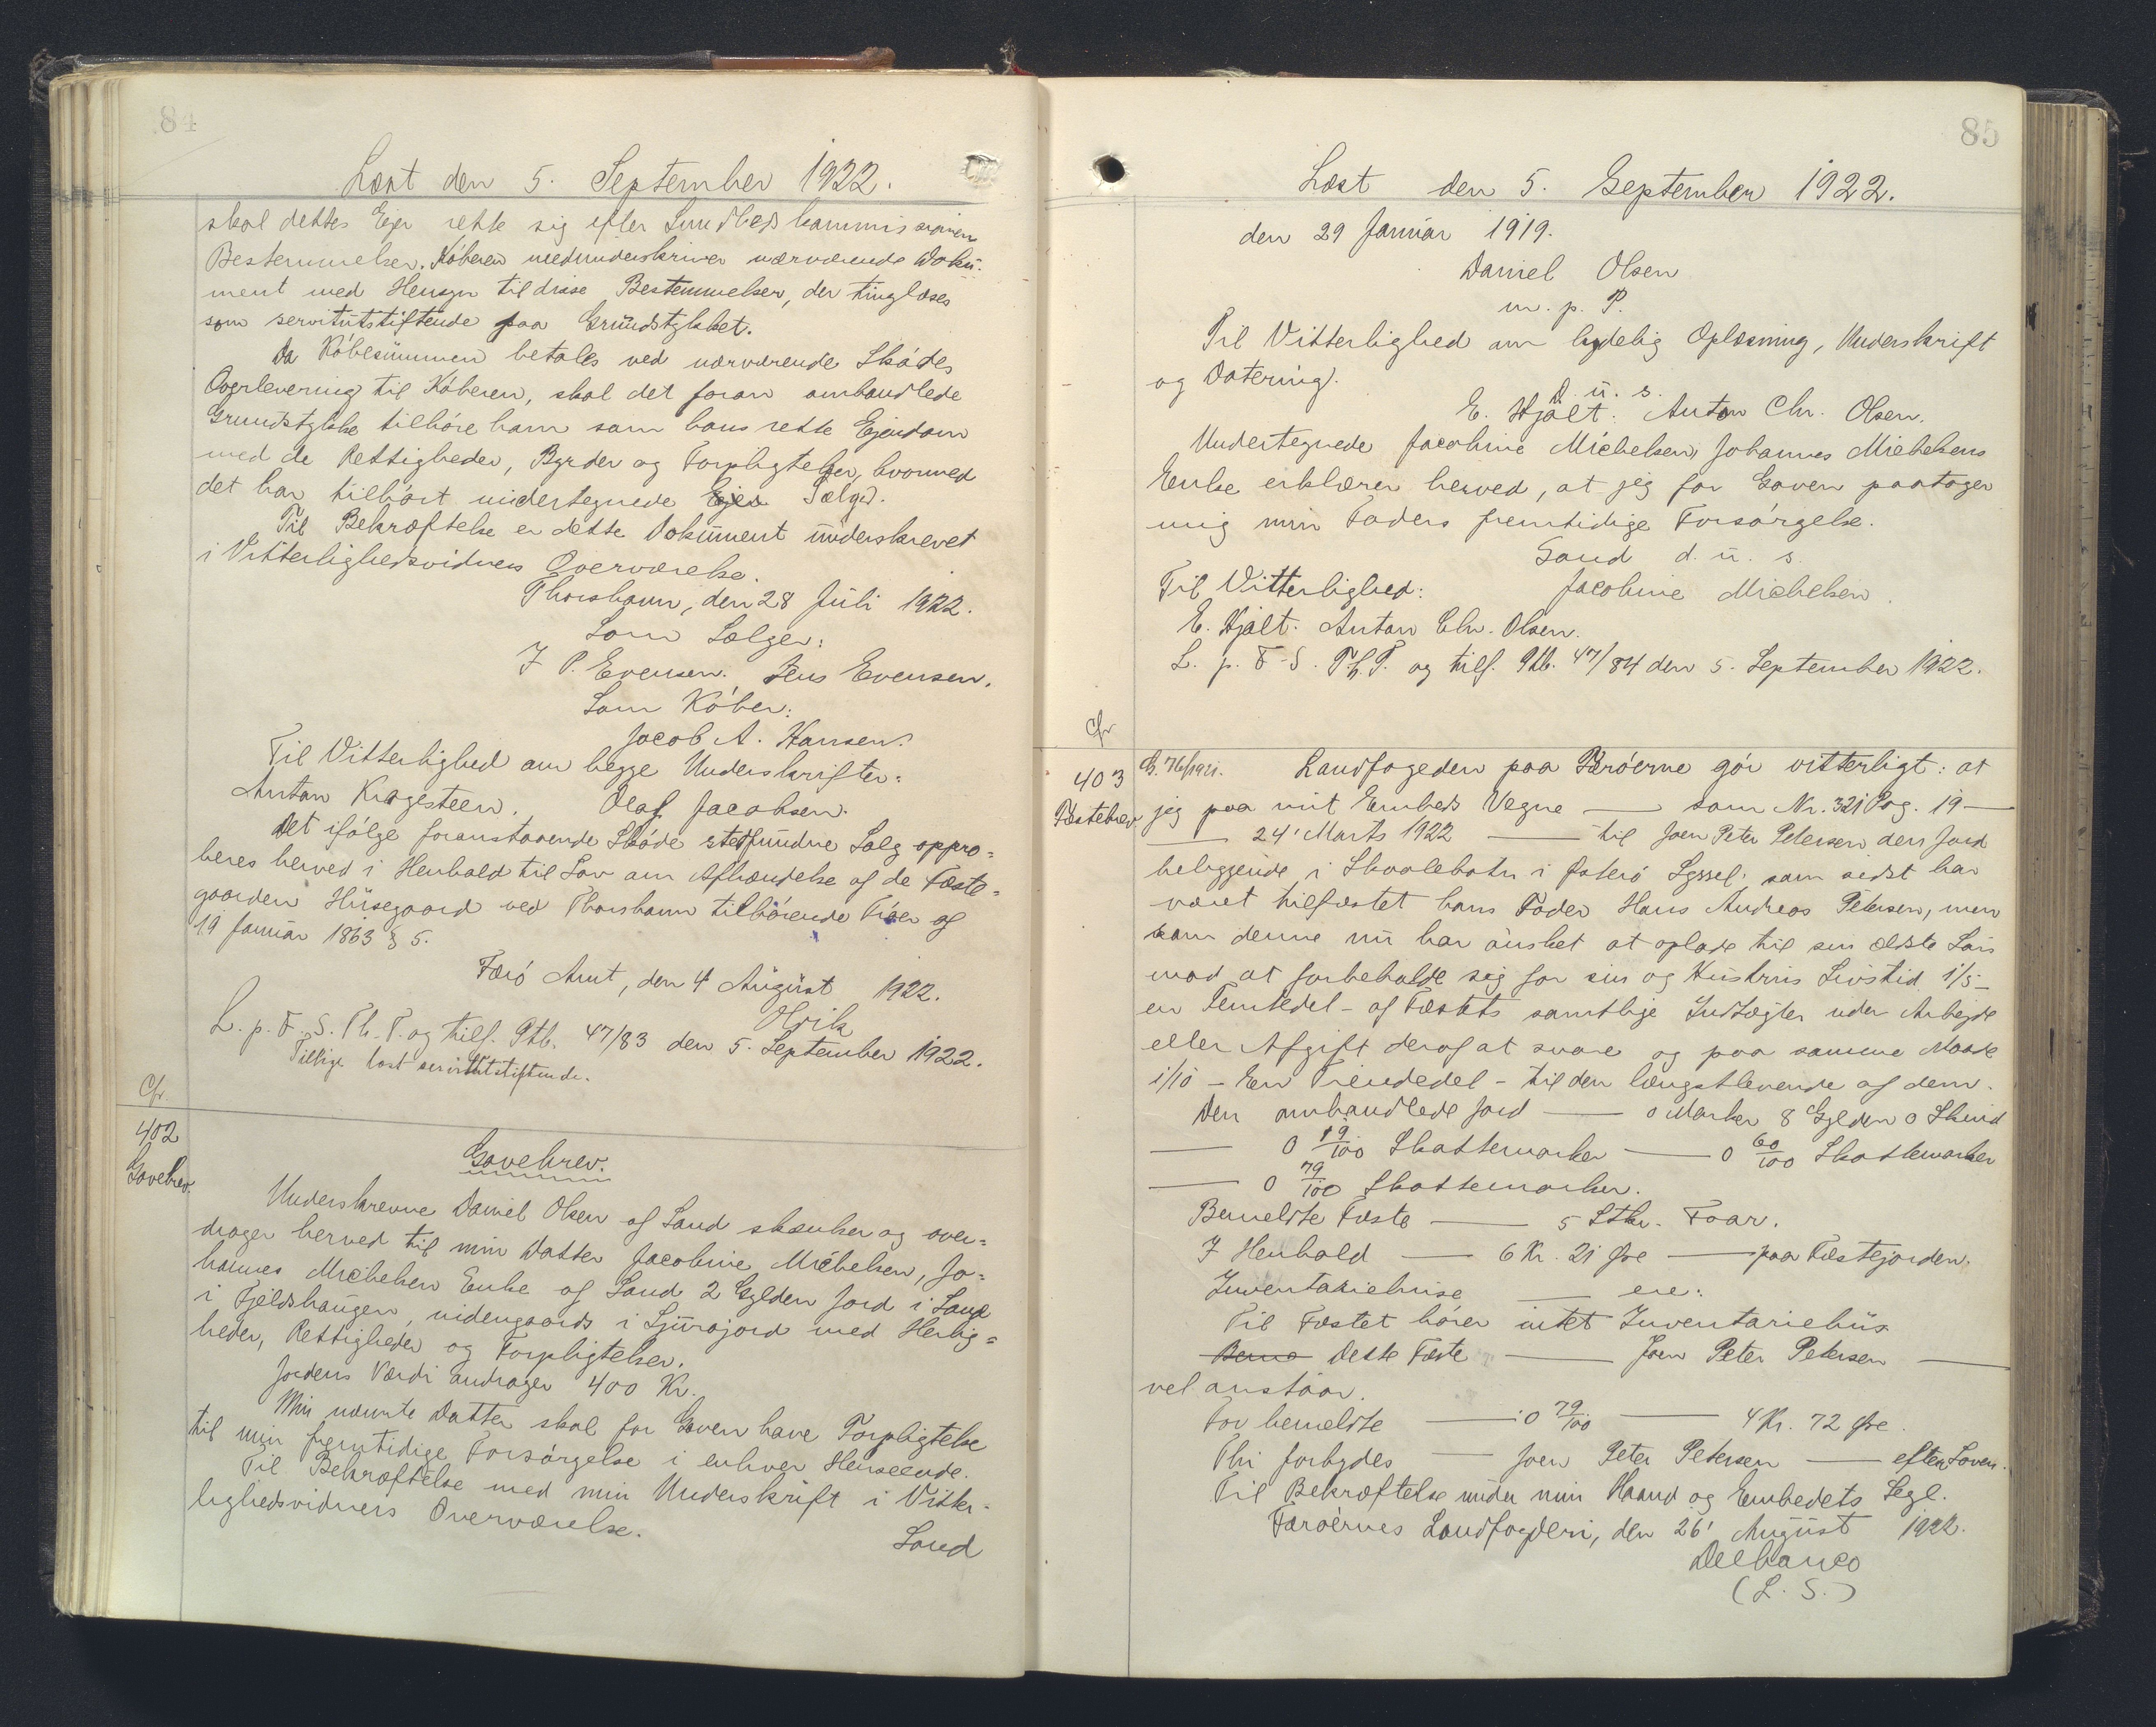 84
Læst den 5. September 1922.
skal dettes Ejer rette sig efter Sundhedskommissionens
Bestemmelser. Köberen medunderskriver nærværende Doku-
ment med Hensyn til disse Bestemmelser, der tinglæses
som servitutstiftende paa Grundstykket.
Da Köbesummen betales ved nærværende Sködes
Overlevering til Köberen, skal det foran omhandlede
Grundstykke tilhöre ham som hans rette Ejendom
med de Rettigheder, Byrder og Forpligtelser, hvormed
det har tilhört undertegnede Ejer Sælger.
Til Bekræftelse er dette Dokument underskrevet
i Vitterlighedsvidners Overværelse.
Thorshavn, den 28 Juli 1922.
Som Sælger:
J P. Evensen. Jens Evensen.
Som Köber:
Jacob A. Hansen.
Til Vitterlighed om begge Underskrifter:
Anton Kragesteen. Olaf Jacobsen.
Det ifölge foranstaaende Sköde stedfundne Salg appro=
beres herved i Henhold til Lov om Afhændelse af de Fæste=
gaarden Húsegaard ved Thorshavn tilhörende Tröer af
19 Januar 1863 § 5.
Færö Amt, den 4 August 1922.
L. p. F. S. Th. T. og tilf. Ptb. 47/83 den 5. September 1922.
Tillige læst servitutstiftende.
Cfr.
402
Gavebrev.
Gavebrev.
Underskrevne Daniel Olsen af Sand skænker og over=
drager herved til min Datter Jacobine Michelsen, Jo=
hannes Michelsens Enke af Sand 2 Gylden Jord i Sand
i Fjeldshaugen, nidengaards i Sjúrajord med Herlig=
heder, Rettigheder og Forpligtelser.
Jordens Værdi andrager 400 Kr.
Min nævnte Datter skal for Gaven have Forpligtelse
til min fremtidige Forsörgelse i enhver Henseende.
Til Bekræftelse med min Underskrift i Vitter-
lighedsvidners Overværelse.
Sand
85
Læst den 5. September 1922.
den 29 Januar 1919.
Daniel Olsen
m. p. P.
Til Vitterlighed om lydelig Oplæsning, Underskrift
og Datering.
D. u. s.
E. Hjalt. Anton Chr. Olsen.
Undertegnede Jacobine Michelsen Johannes Michelsens
Enke erklærer herved, at jeg for Gaven paatager
mig min Faders fremtidige Forsörgelse.
Sand d. u. s.
Til Vitterlighed: Jacobine Michelsen.
E. Hjalt. Anton Chr. Olsen.
L. p. F. S. Th. T. og tilf. Ptb. 47/84 den 5. September 1922.
Cfr
403
Fæstebrev
G. 76/1921. Landfogeden paa Færöerne gör vitterligt: at
jeg paa mit Embeds Vegne — som Nr. 321 Pag. 19 —
— 24' Marts 1922 — til Joen Peter Petersen den Jord
beliggende i Skaalebotn i Österö Syssel, som sidst har
været tilfæstet hans Fader Hans Andreas Petersen, men
som denne nu har önsket at oplade til sin ældste Sön
mod at forbeholde sig for sin og Hustrus Livstid 1/5 —
en Femtedel — af Fæstets samtlige Indtægter uden Arbejde
eller Afgift deraf at svare og paa samme Maade
1/10 — En Tiendedel — til den længstlevende af dem.
Den omhandlede Jord — 0 Marker 8 Gylden 0 Skind
— 0 19/100 Skattemarker — 0 60/100 Skattemarker
— 0 79/100 Skattemarker.
Bemeldte Fæste — 5 Stkr. Faar.
I Henhold — 6 Kr. 21 Öre — paa Fæstejorden.
Inventariehuse — ere:
Til Fæstet hörer intet Inventariehus
Beme Dette Fæste — Joen Peter Petersen —
vel anstaar.
For bemeldte — 0 79/100 — 4 Kr. 72 Öre.
Thi forbydes — Joen Peter Petersen — efter Loven.
Til Bekræftelse under min Haand og Embedets Segl.
Færöernes Landfogderi, den 26' August 1922.
Delbanco
(L. S.)